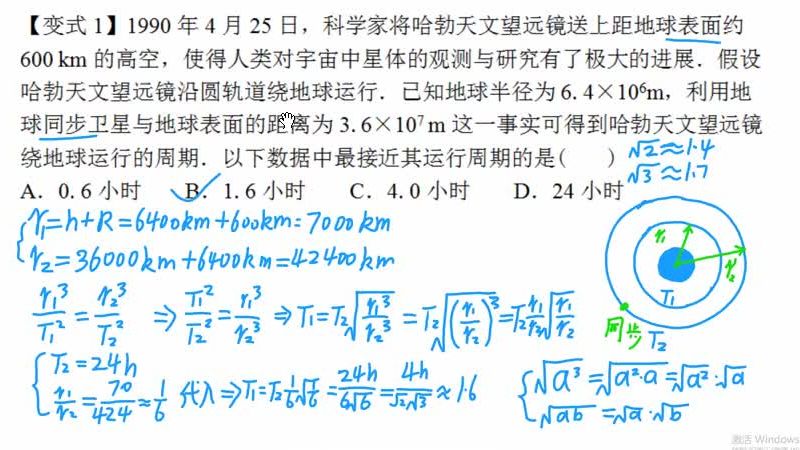 【变式 1】1990 年 4 月 25 日，科学家将哈勃天文望远镜送上距地球表面约
600 km 的高空，使得人类对宇宙中星体的观测与研究有了极大的进展．假设
哈勃天文望远镜沿圆轨道绕地球运行．已知地球半径为 6.4×10⁶m，利用地
球同步卫星与地球表面的距离为 3.6×10⁷ m 这一事实可得到哈勃天文望远镜
绕地球运行的周期．以下数据中最接近其运行周期的是(　　)
√2≈1.4
√3≈1.7
A．0.6 小时　B．1.6 小时　C．4.0 小时　D．24 小时
r₁=h+R=6400km+600km=7000km
r₂=36000km+6400km=42400km
r₁³/T₁²=r₂³/T₂² ⇒ T₁²/T₂²=r₁³/r₂³ ⇒ T₁=T₂√(r₁³/r₂³)=T₂√((r₁/r₂)³)=T₂ r₁/r₂ √(r₁/r₂)
T₂=24h
r₁/r₂=70/424≈1/6 代入⇒T₁=T₂ 1/6 √(1/6)=24h/(6√6)=4h/(√2√3)≈1.6
r₁
r₂
T₁
同步
T₂
√(a³)=√(a²·a)=√(a²)·√a
√(ab)=√a·√b
激活 Windows